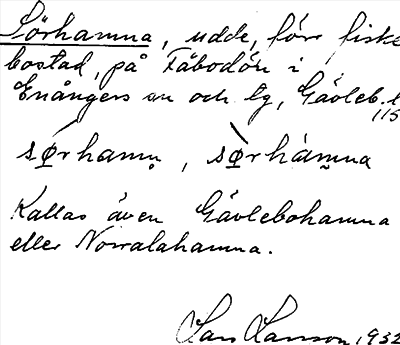 Sörhamna, udde, förr fiske
bostad, på Fäbodön i
Enångers sn och lg, Gävleb. l
115
sørhamn̥, sørhàmna
Kallas även Gävlebohamna
eller Norralahamna.
Lars Larsson, 1932